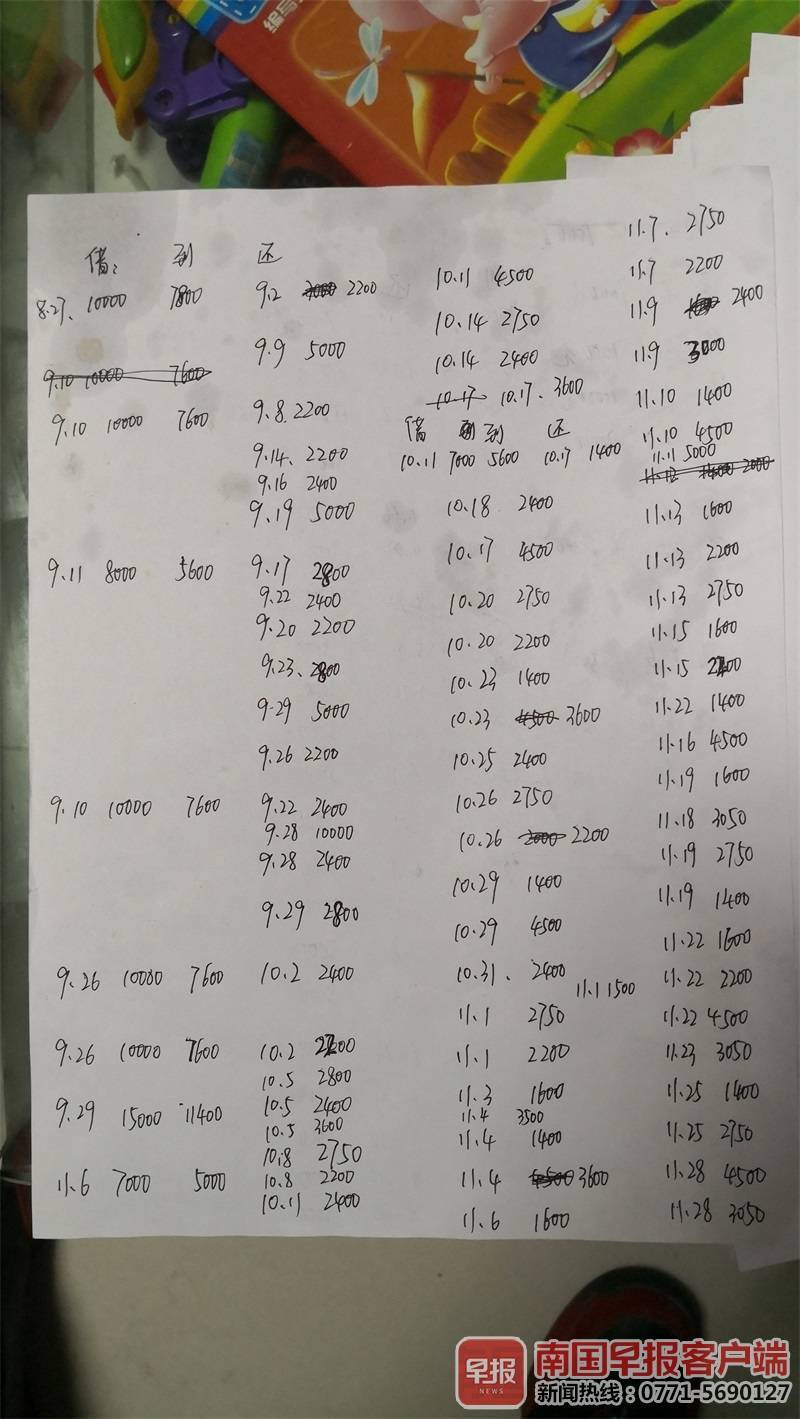 借: 到 还
8.27、 10000 7800 9.2 2200
9.9 5000
9.10 10000 7600
9.10 10000 7600 9.8. 2200
9.14、 2200
9.16 2400
9.19 5000
9.11 8000 5600 9.17 2800
9.22 2400
9.20 2200
9.23、 2800
9.29 5000
9.26 2200
9.10 10000 7600 9.22 2400
9.28 10000
9.28 2400
9.29 2800
9.26 10000 7600 10.2 2400
9.26 10000 7600 10.2 2200
10.5 2800
9.29 15000 11400 10.5 2400
10.5 3600
10.8 2750
11.6 7000 5000 10.8 2200
10.11 2400
10.11 4500
10.14 2750
10.14 2400
10.17 10.17、 3600
借 到 还
10.11 7000 5600 10.17 1400
10.18 2400
10.17 4500
10.20 2750
10.20 2200
10.23 1400
10.23 4500 3600
10.25 2400
10.26 2750
10.26 2000 2200
10.29 1400
10.29 4500
10.31、 2400
11.1 1500
11.1 2750
11.1 2200
11.3 1600
11.4 3500
11.4 1400
11.4 4500 3600
11.6 1600
11.7、 2750
11.7 2200
11.9 2400
11.9 3000
11.10 1400
11.10 4500
11.11 5000
11.12 2000
11.13 1600
11.13 2200
11.13 2750
11.15 1600
11.15
11.22 1400
11.16 4500
11.19 1600
11.18 3050
11.19 2750
11.19 1400
11.22 1600
11.22 2200
11.22 4500
11.23 3050
11.25 1400
11.25 2750
11.28 4500
11.28 3050
早报
NEWS
南国早报客户端
新闻热线：0771-5690127